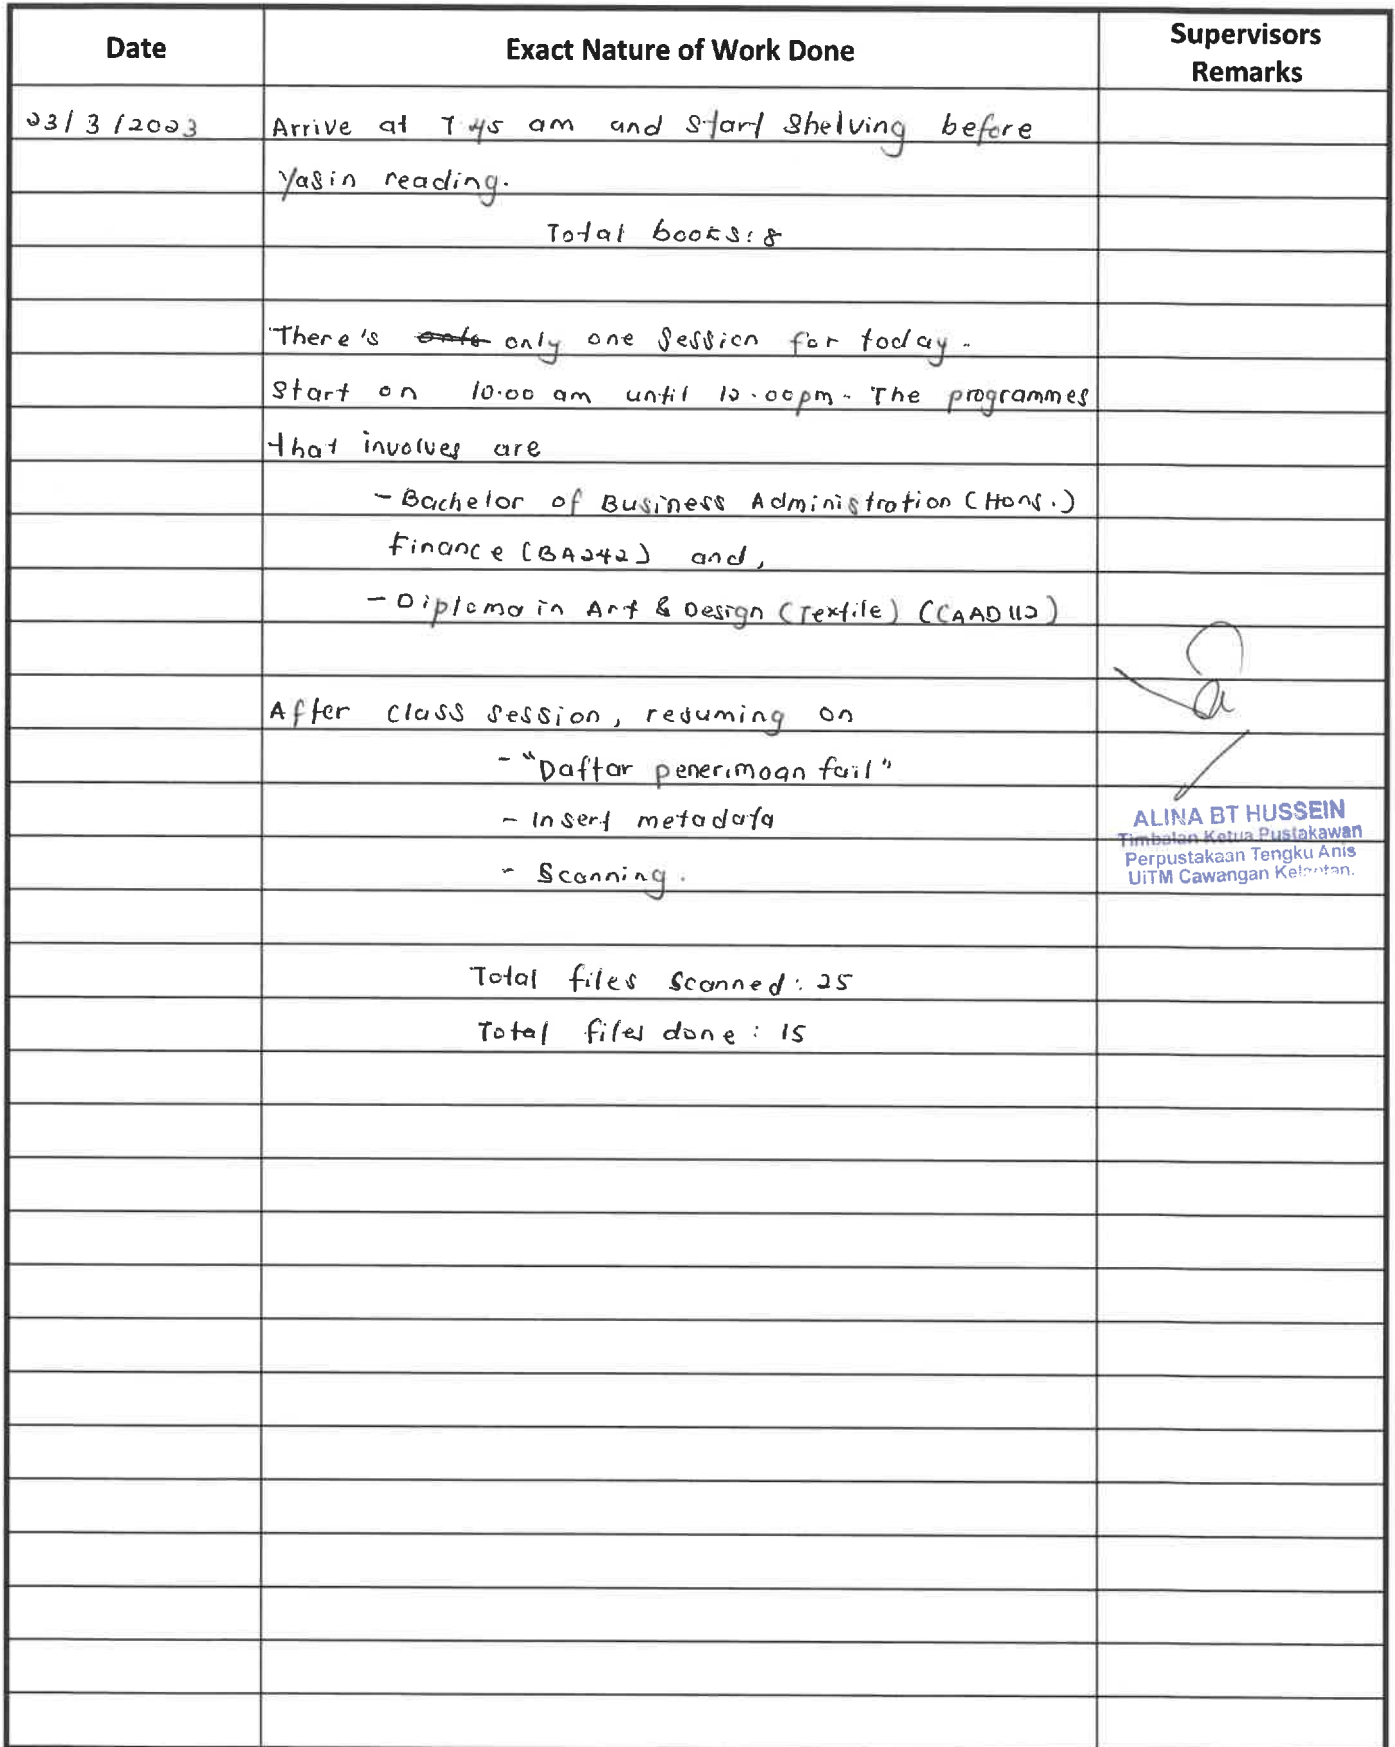 Date Exact Nature of Work Done Supervisors Remarks
23/3/2023 Arrive at 7.45 am and start shelving before
Yasin reading.
Total books: 8
There's only one session for today.
Start on 10.00 am until 12.00pm. The programmes
that involves are
- Bachelor of Business Administration (Hons.)
Finance (BA242) and,
- Diploma in Art & Design (Textile) (CAAD112)
After class session, resuming on
- "Daftar penerimaan fail"
- Insert metadata
- Scanning.
ALINA BT HUSSEIN
Timbalan Ketua Pustakawan
Perpustakaan Tengku Anis
UiTM Cawangan Kelantan.
Total files scanned: 25
Total files done: 15